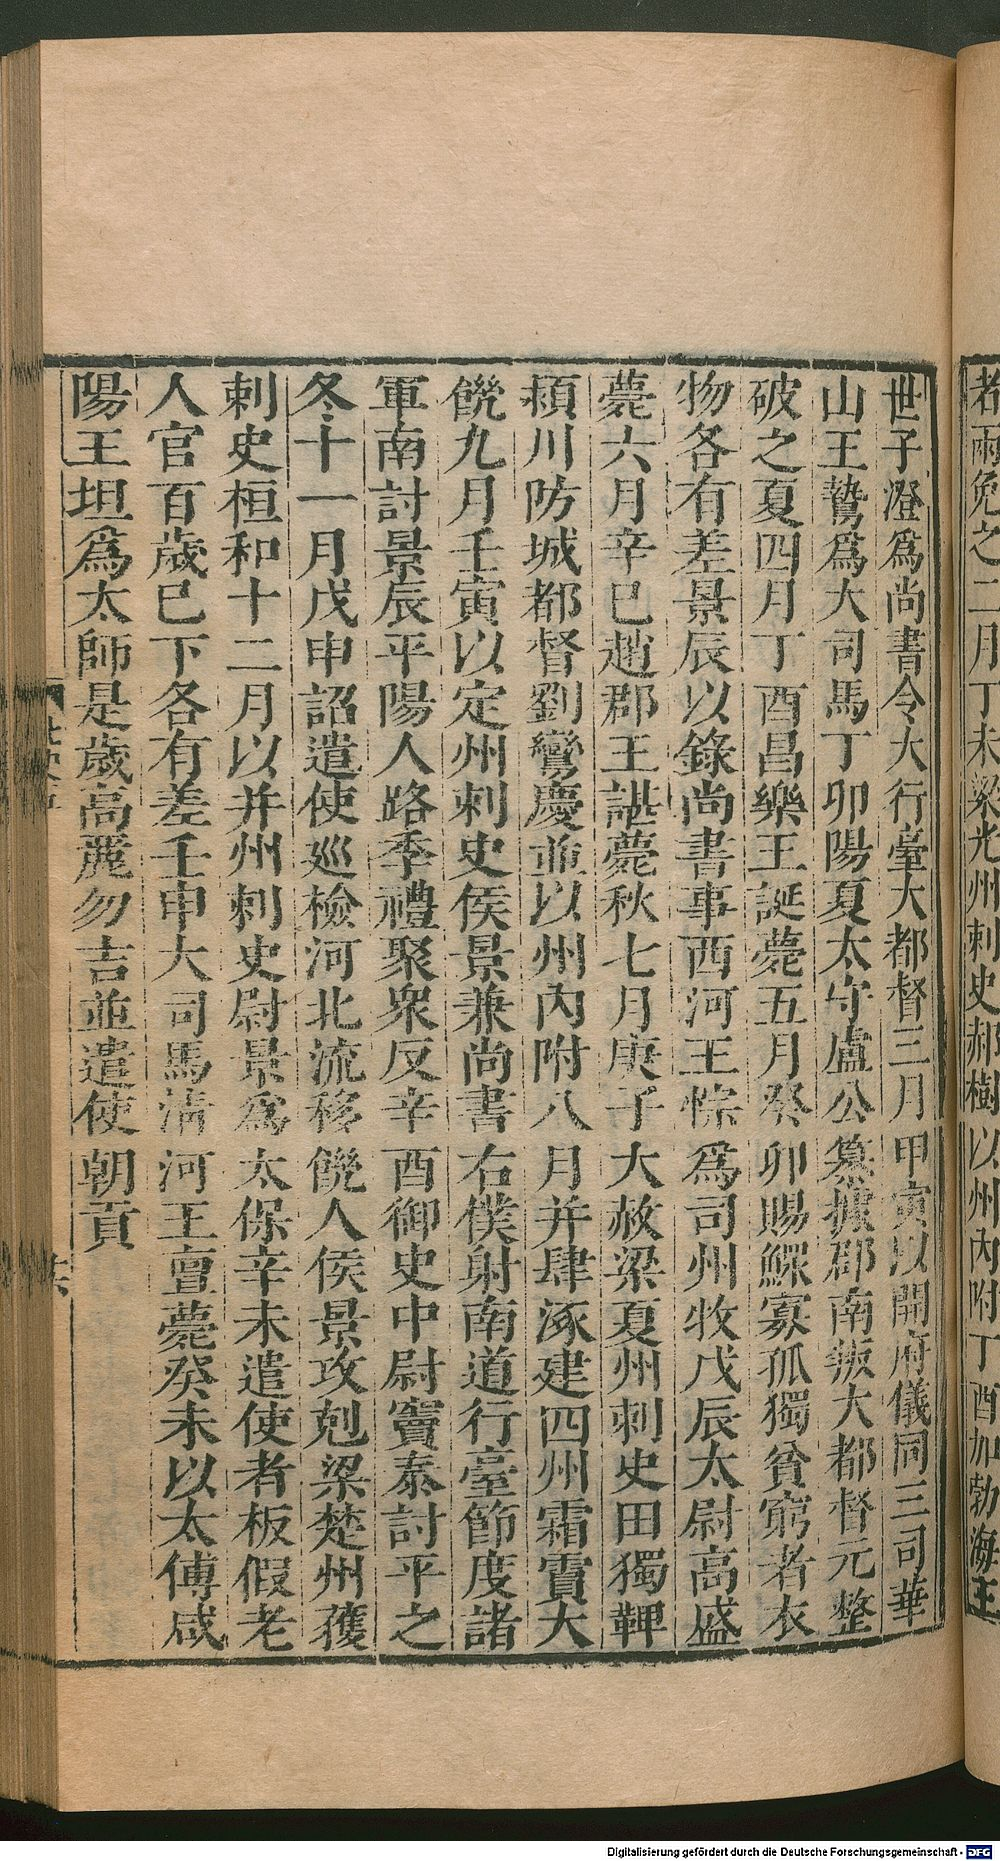 者雨免之二月丁未梁光州刺史郝樹以州內附丁酉加勃海王
世子澄爲尚書令大行臺大都督三月甲寅以開府儀同三司華
山王鷙爲大司馬丁卯陽夏太守盧公纂據郡南叛大都督元整
破之夏四月丁酉昌樂王誕薨五月癸卯賜鰥寡孤獨貧窮者衣
物各有差景辰以錄尚書事西河王悰爲司州牧戊辰太尉高盛
薨六月辛巳趙郡王諶薨秋七月庚子大赦梁夏州刺史田獨鞞
頴川防城都督劉鸞慶並以州內附八月并肆涿建四州霜霣大
饑九月壬寅以定州刺史侯景兼尚書右僕射南道行臺節度諸
軍南討景辰平陽人路季禮聚衆反辛酉御史中尉竇泰討平之
冬十一月戊申詔遣使巡檢河北流移饑人侯景攻剋梁楚州獲
刺史桓和十二月以并州刺史尉景爲太保辛未遣使者板假老
人官百歲已下各有差壬申大司馬清河王亶薨癸未以太傅咸
陽王坦爲太師是歲高麗勿吉並遣使朝貢
Digitalisierung gefördert durch die Deutsche Forschungsgemeinschaft - DFG